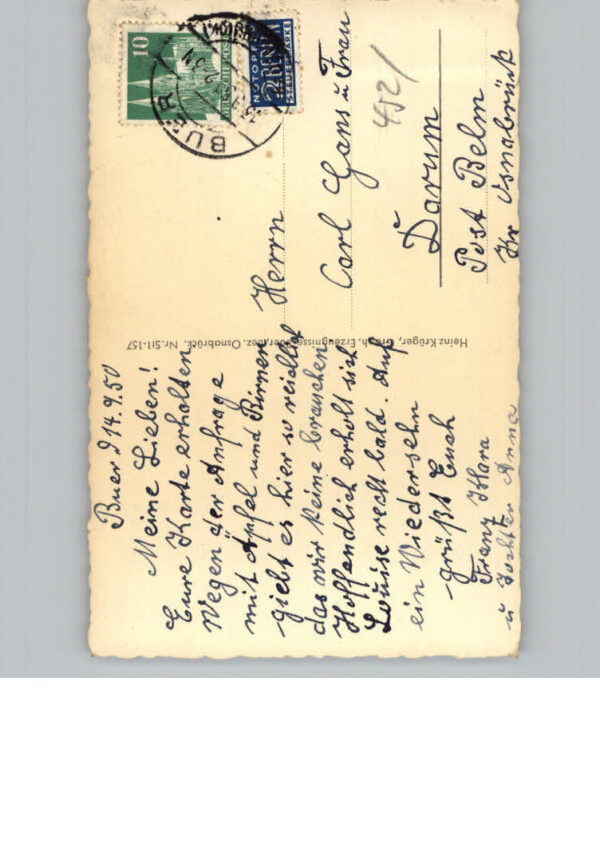 Buer d 14.9.50
Meine Lieben!
Eure Karte erhalten
Wegen der Anfrage
mit Äpfel und Birnen
giebt es hier so reichlich
das wir keine brauchen
Hoffendlich erholt sich
Louise recht bald. Auf
ein Wiedersehn
grüßt Euch
Franz Klara
u Tochter Anna
Heinz Krüger, Graph. Erzeugnisse, Bez. Osnabrück. Nr. St1-157
10
DEUTSCHE POST
NOTOPFER
2 BERLIN
STEUERMARKE
BUER
Herrn
Carl Gans u Frau
452/
Darum
Post Belm
Kr Osnabrück